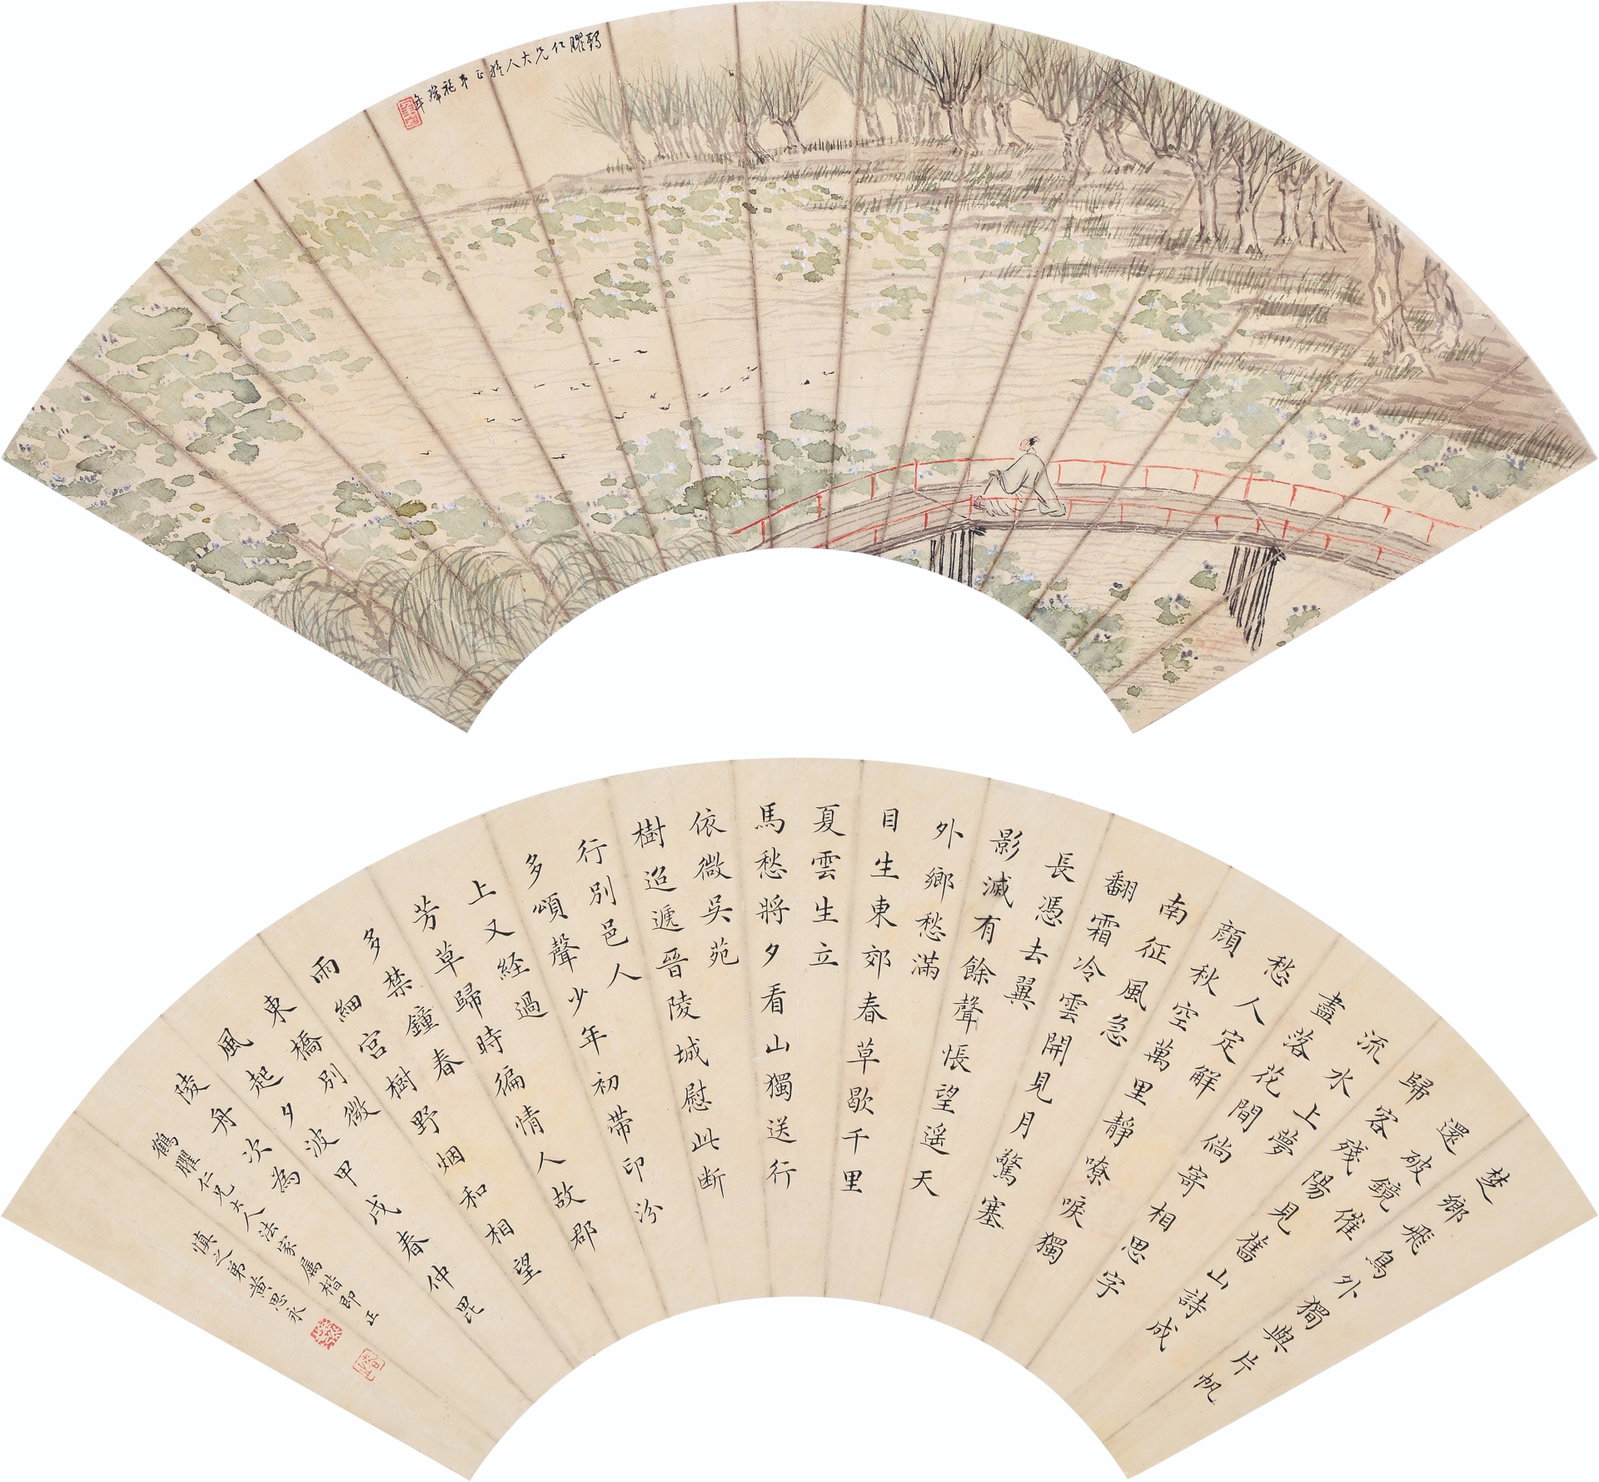 仁兄大人雅正弟
楚鄉飛鳥外獨與片帆
還破鏡催
歸客殘陽見舊山詩成
流水上夢
盡落花間倘寄相思字
愁人定解
顔秋空萬里靜嘹唳獨
南征風急
翻霜冷雲開見月驚塞
長憑去翼
影滅有餘聲悵望遥天
外鄉愁滿
目生東郊春草歇千里
夏雲生立
馬愁將夕看山獨送行
依微吳苑
樹迢遞晉陵城慰此斷
行別邑人
多頌聲少年初帶印汾
上又経過
芳草歸時徧情人故郡
多禁鐘春
雨細宮樹野烟和相望
東橋別微
風起夕波甲戌春仲毘
陵舟次為
鶴臞仁兄大人法家屬楷即正
慎之弟黃思永